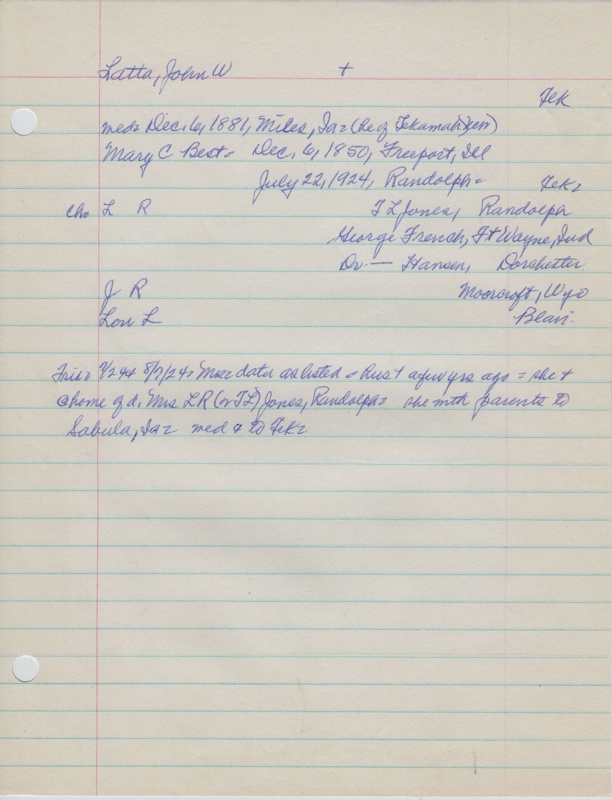 Latta, John W +
Tek
med= Dec. 6, 1881, Miles, Ia= (he of Tekamah then)
Mary C Best= Dec. 6, 1850, Freeport, Ill
July 22, 1924, Randolph= Tek=
ch= L R T L Jones, Randolph
George French, Ft Wayne, Ind
Dr — Hansen, Dorchester
J R Moorcroft, Wyo
Lou L Blair
8/7/24= data as listed = hus + a few yrs ago = she +
@ home of d, Mrs L R (or T L) Jones, Randolph= she mth parents to
Sabula, Ia= med & to Tek=